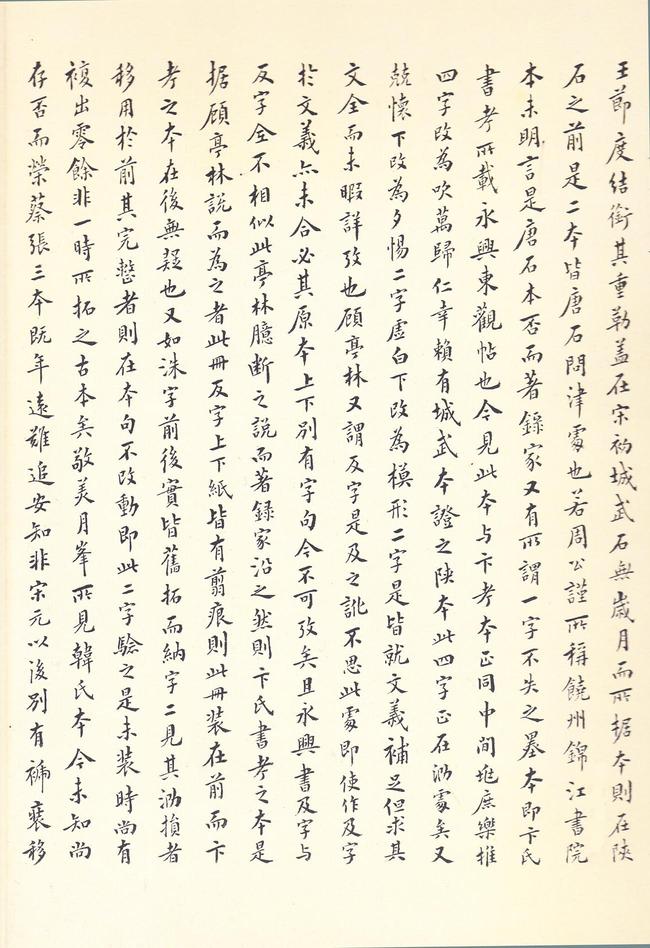 王節度結銜其重勒蓋在宋初城武石無歲月而所据本則在陝
石之前是二本皆唐石問津處也若周公謹所稱饒州錦江書院
本未明言是唐石本否而著錄家又有所謂一字不失之墨本即卞氏
書考所載永興東觀帖也今見此本与卞考本正同中間逃庶樂推
四字改為吹萬歸仁幸賴有城武本證之陝本此四字正在泐處矣又
兢懷下改為夕惕二字虛白下改為模形二字是皆就文義補足但求其
文全而未暇詳攷也顧亭林又謂反字是及之訛不思此處即使作及字
於文義亦未合必其原本上下別有字句今不可攷矣且永興書及字与
反字全不相似此亭林臆断之說而著録家沿之然則卞氏書考之本是
据顧亭林說而為之者此冊反字上下紙皆有翦痕則此冊装在前而卞
考之本在後無疑也又如洙字前後實皆舊拓而納字二見其泐損者
移用於前其完整者則在本句不改動即此二字驗之是未装時尚有
複出零餘非一時所拓之古本矣敬美月峯所見韓氏本今未知尚
存否而榮蔡張三本既年遠難追安知非宋元以後別有補裱移